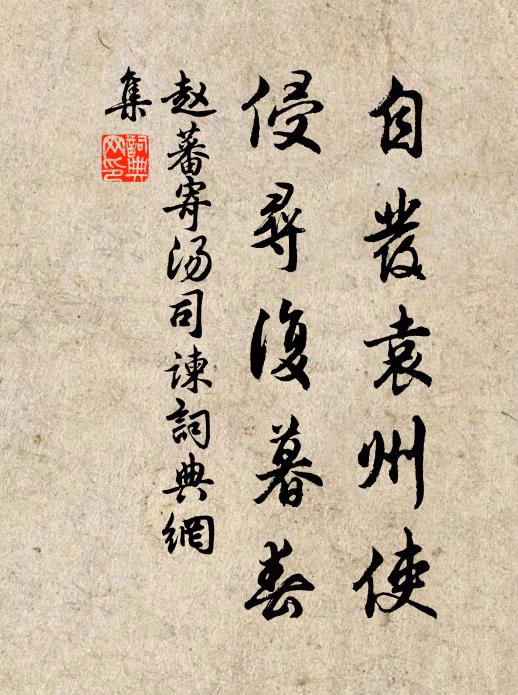 自發袁州使
侵尋復暮春
赵蕃寄汤司諫詞典網
集
詞典